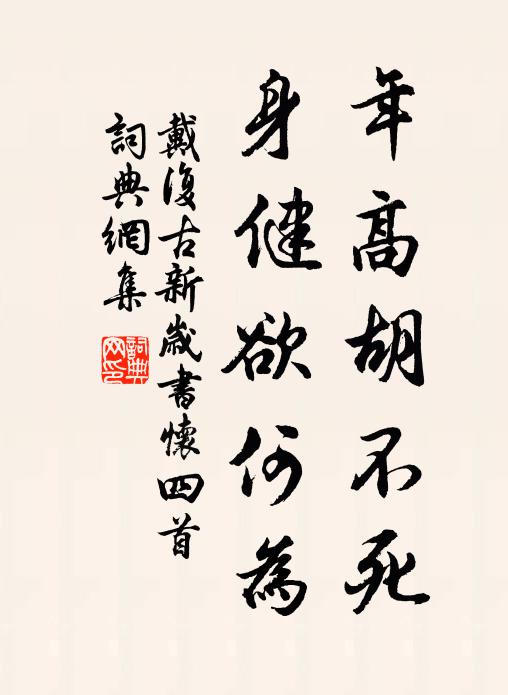 年高胡不死
身健欲何為
戴復古新歲書懷四首
詞典網集
詞典網印